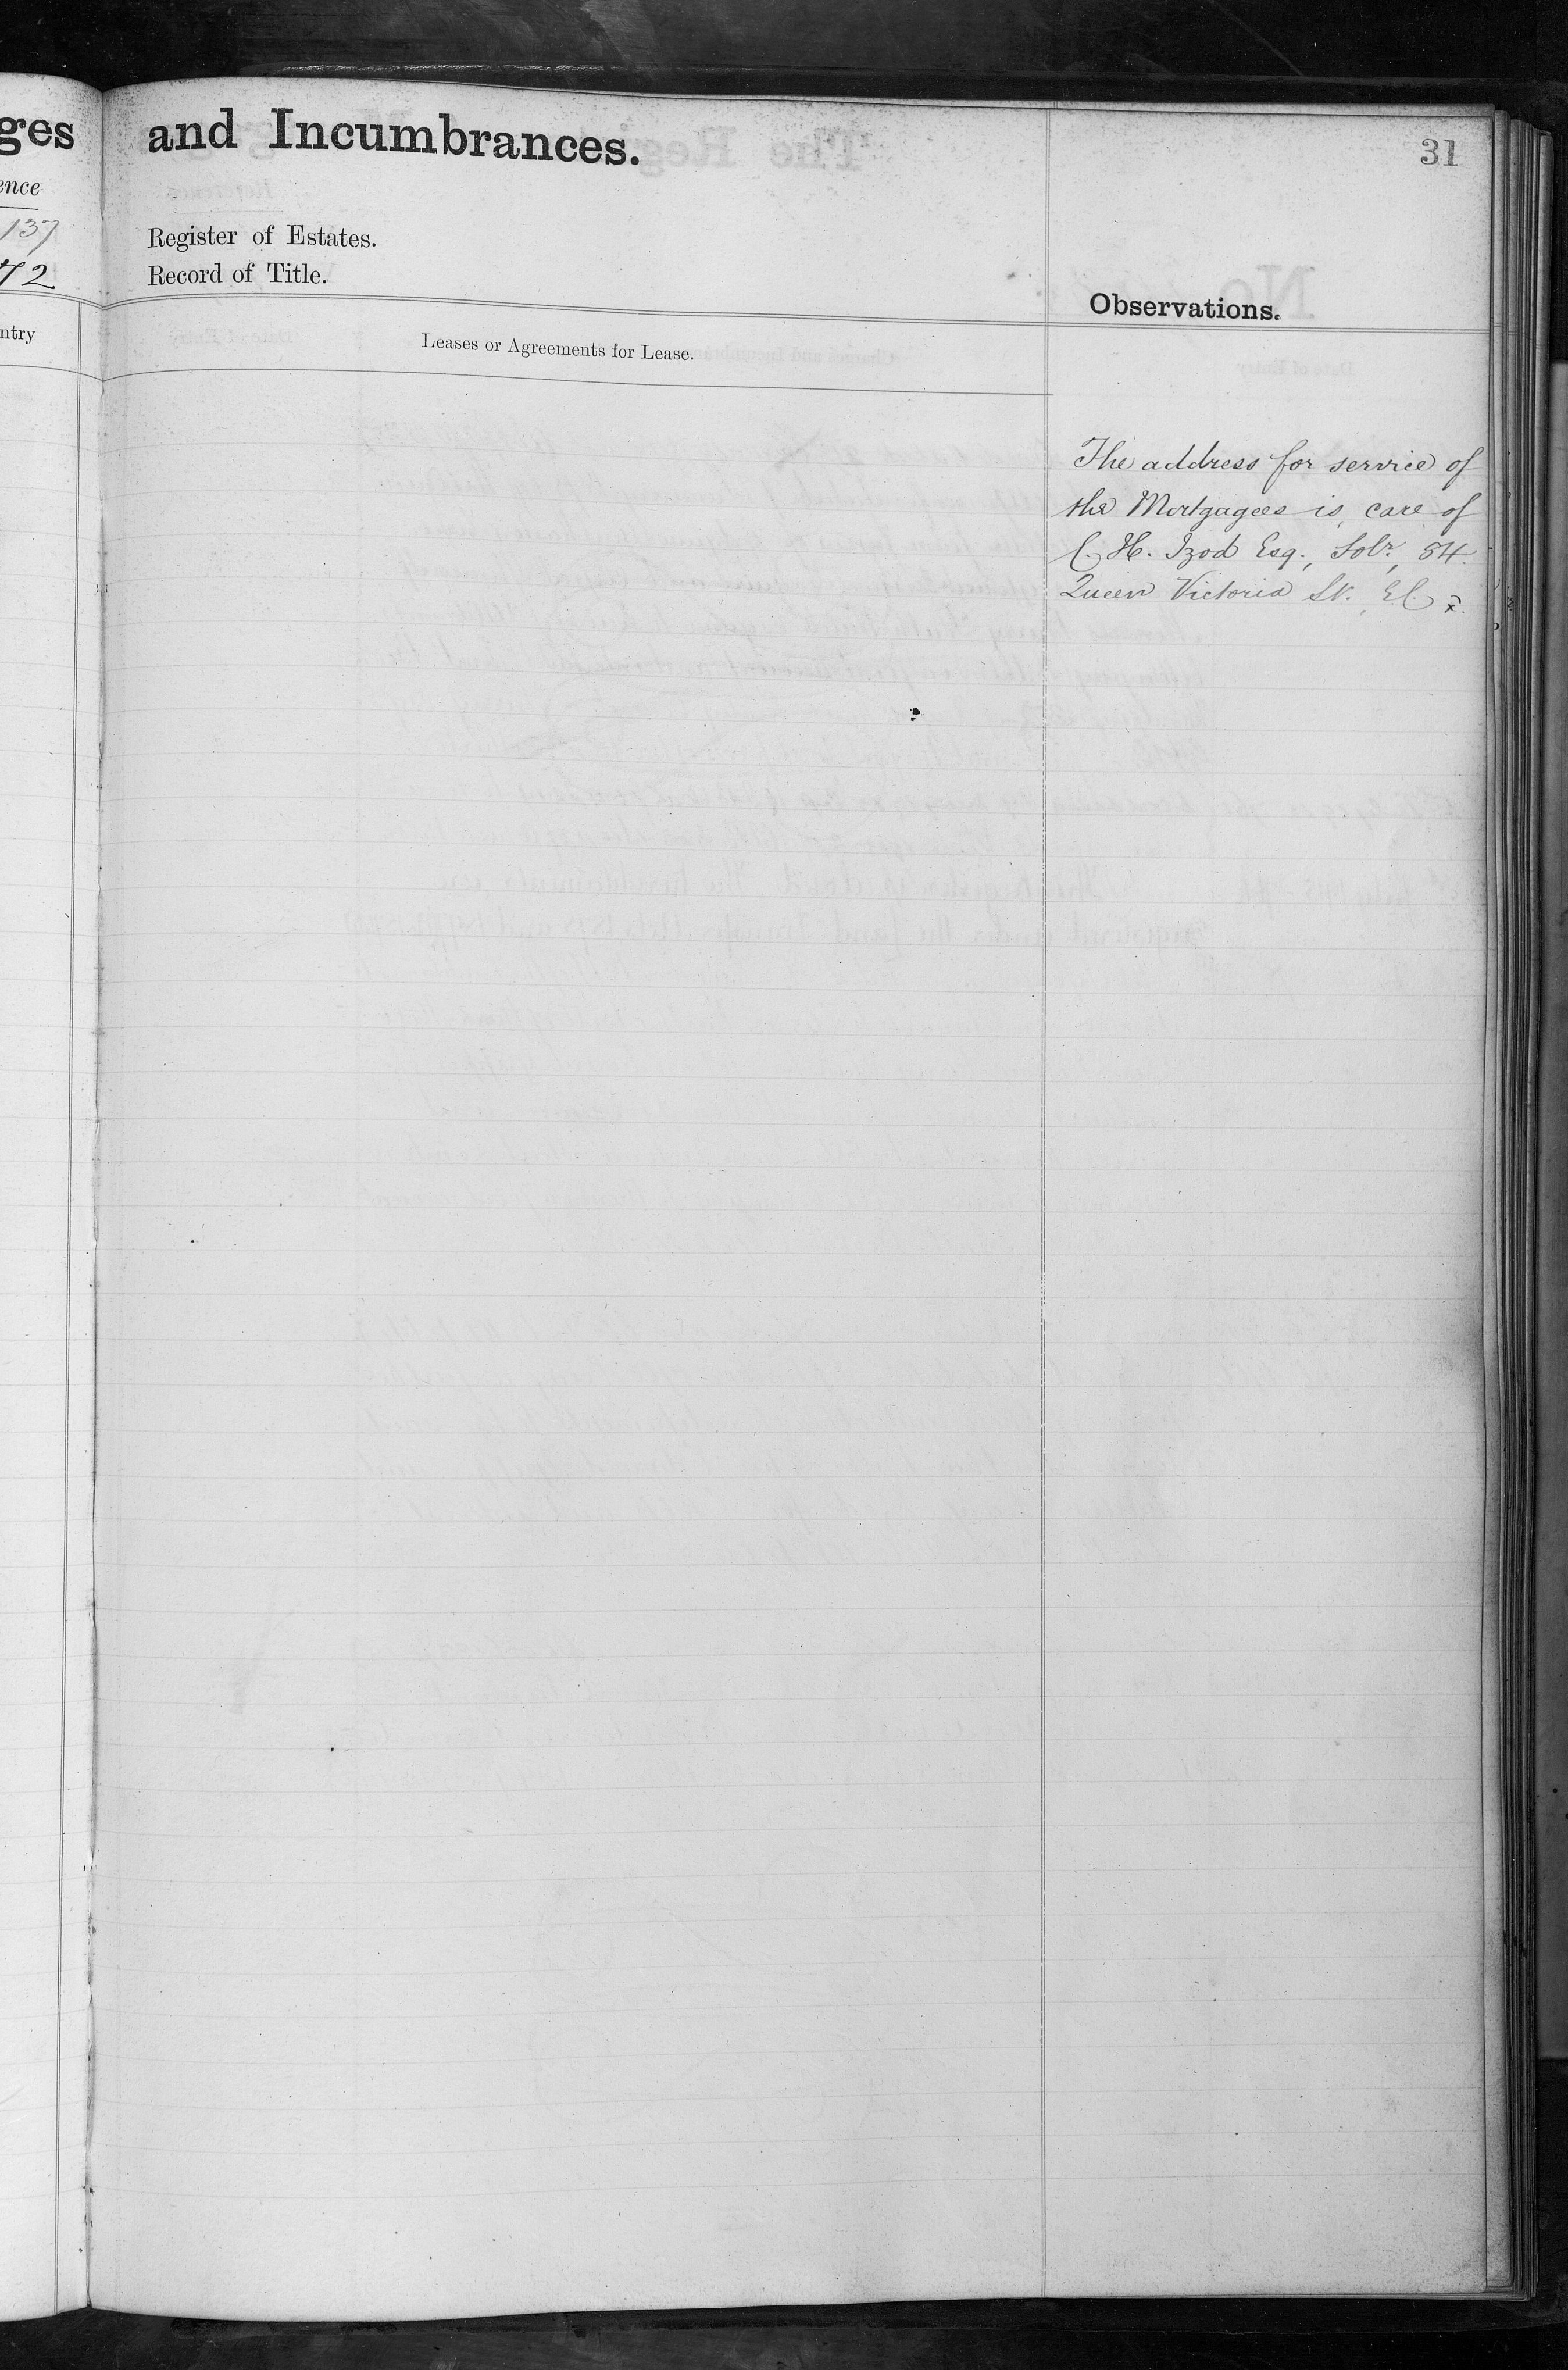 ges
ence
137
72
ntry
and Incumbrances.
31
Register of Estates.
Record of Title.
Observations.
Leases or Agreements for Lease.
The address for service of
the Mortgagees is, care of
C. H. Izod Esq., Solr., 84.
Queen Victoria St. E.C.